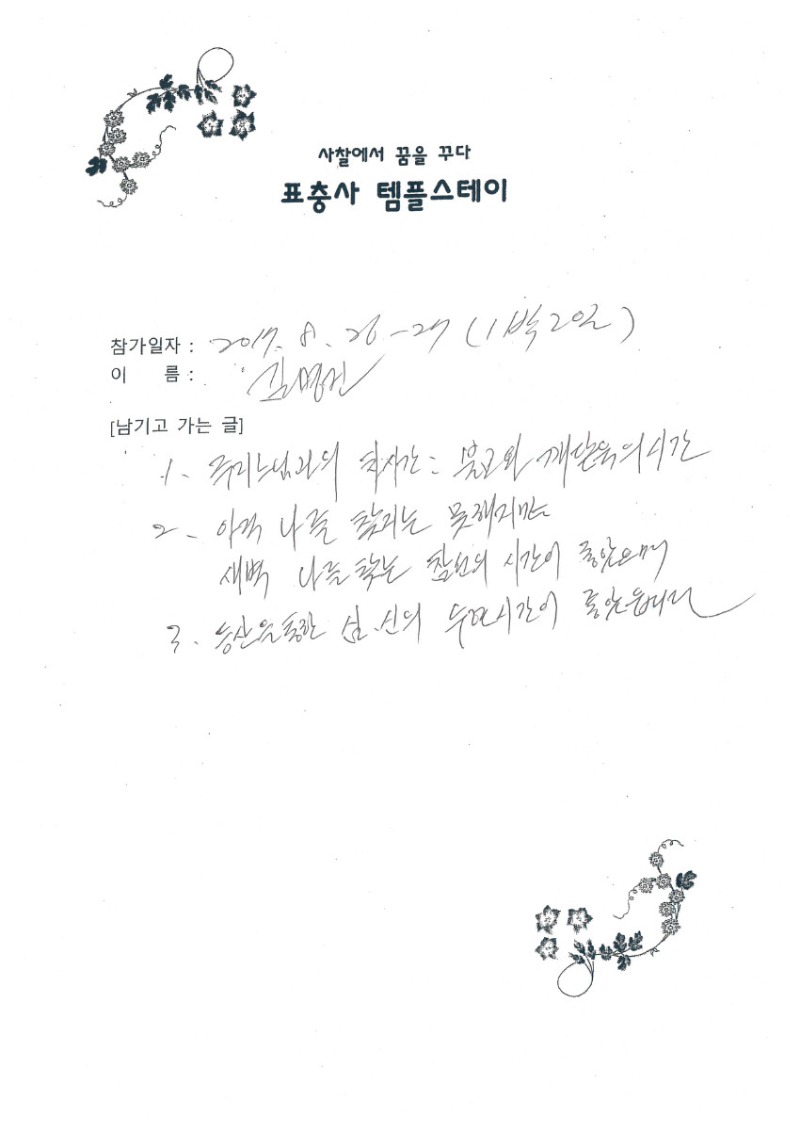 사찰에서 꿈을 꾸다
표충사 템플스테이
참가일자 : 2017. 8. 26-27 (1박2일)
이 름 : 김명진
[남기고 가는 글]
1. 주지스님과의 차시간 : 불교와 깨달음의 시간
2. 아직 나를 찾지는 못해지만
새벽 나를 찾는 참선의 시간이 좋았으며
3. 등산을 통한 심.신의 수련시간이 좋았읍니다